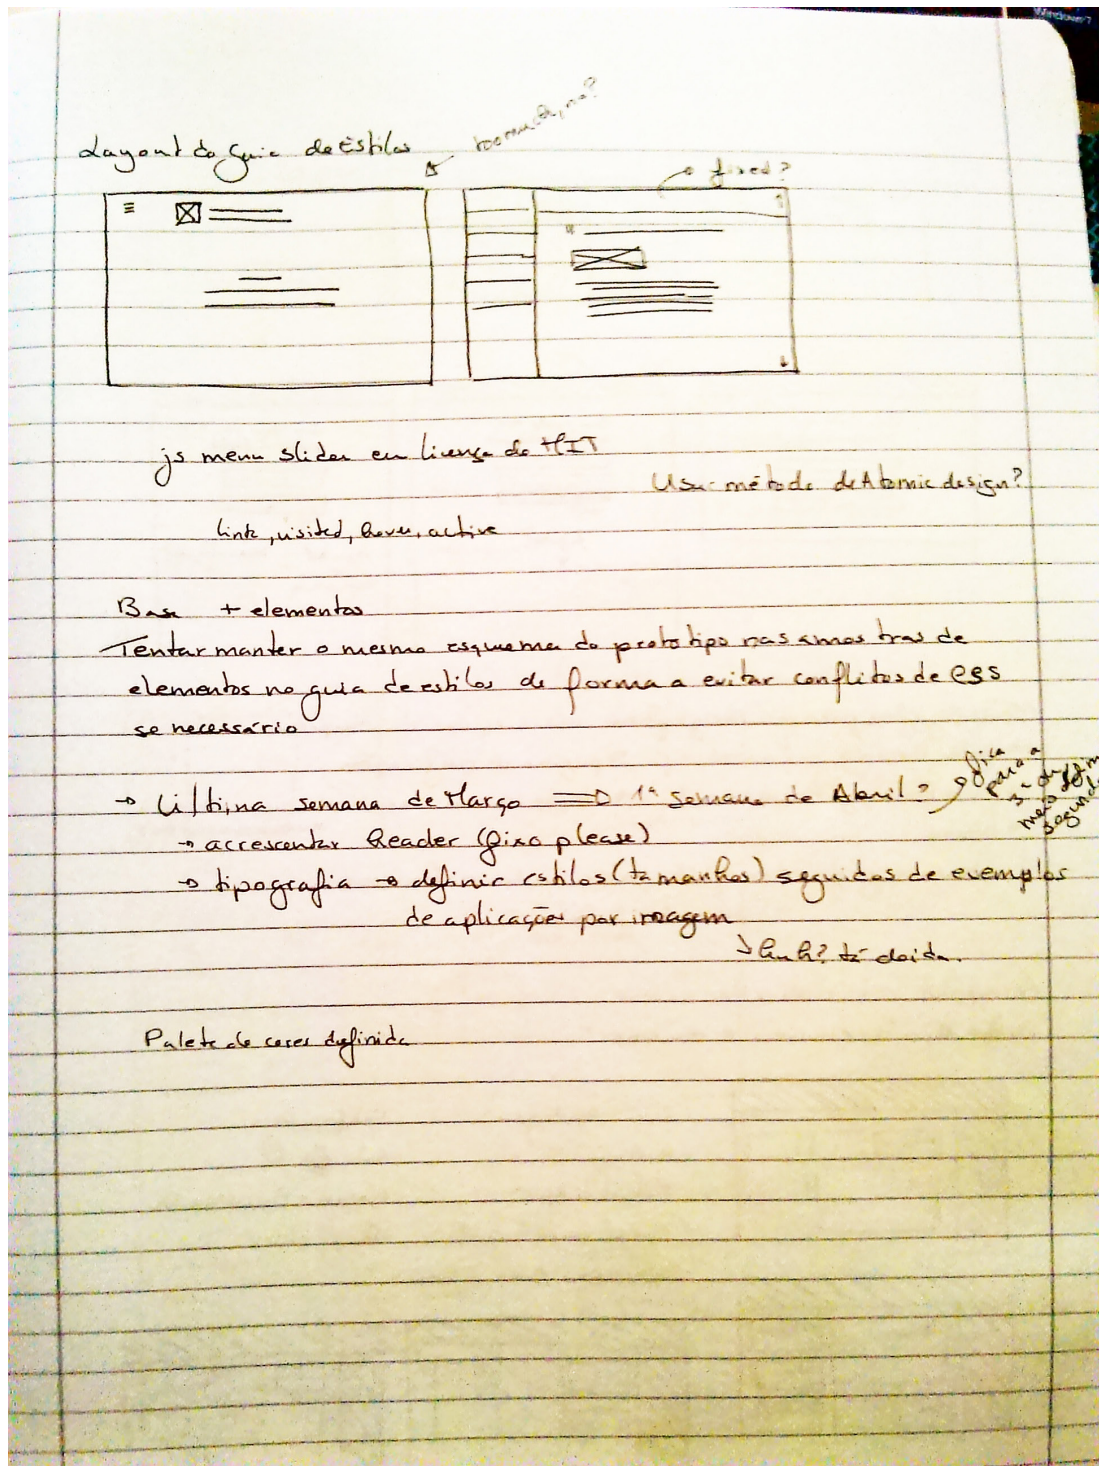 Windows 7
Layout do Guia de Estilos
fixed?
js menu slider em licença do MIT
Usar método de Atomic design?
link, visited, hover, active
Base + elementos
Tentar manter o mesmo esquema do prototipo nas amostras de
elementos no guia de estilos de forma a evitar conflitos de css
se necessário
→ Última semana de Março ⇒ 1ª semana de Abril?
fica
para a
3ª ou
→ acrescentar header (fixo please)
→ tipografia → definir estilos (tamanhos) seguidos de exemplos
de aplicações por imagem
↳ huh? tá doida.
Palete de cores definida